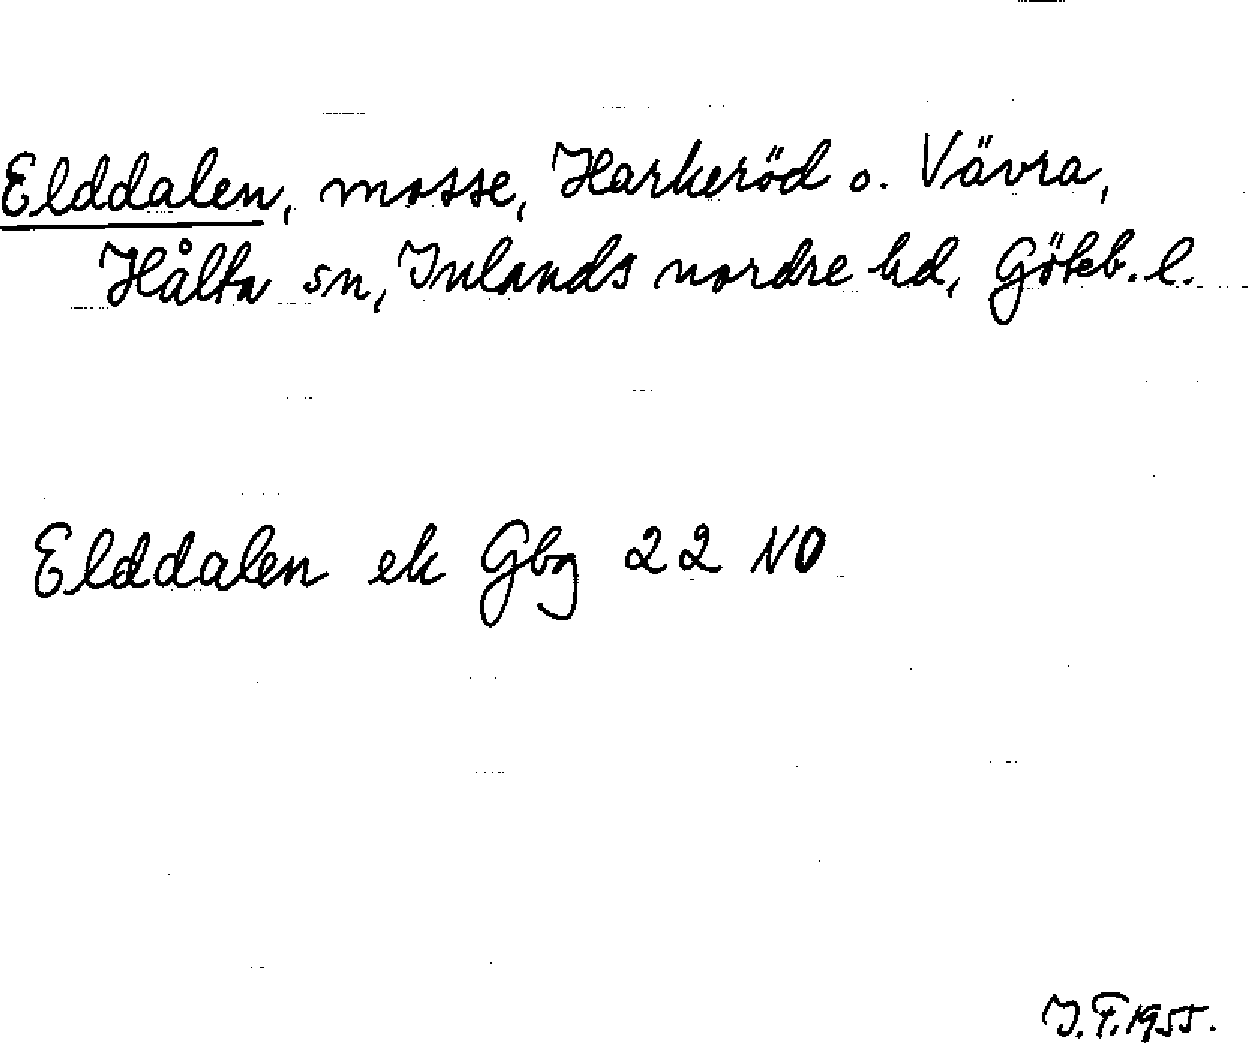 Elddalen, mosse, Harkeröd o. Vävra,
Hålta sn, Inlands nordre hd, Göteb. l.
Elddalen ek Gbg 22 NO
I. F. 1955.